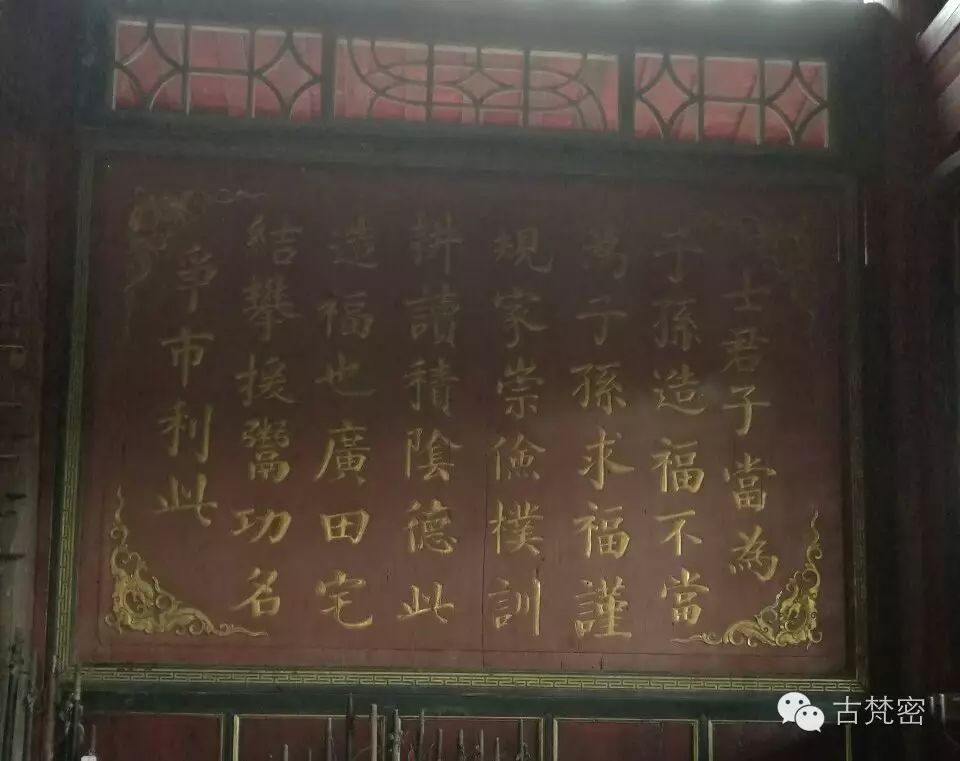 士君子當為
子孫造福不當
為子孫求福謹
規家崇儉樸訓
耕讀積陰德此
造福也廣田宅
結攀援鬻功名
爭市利此
古梵密